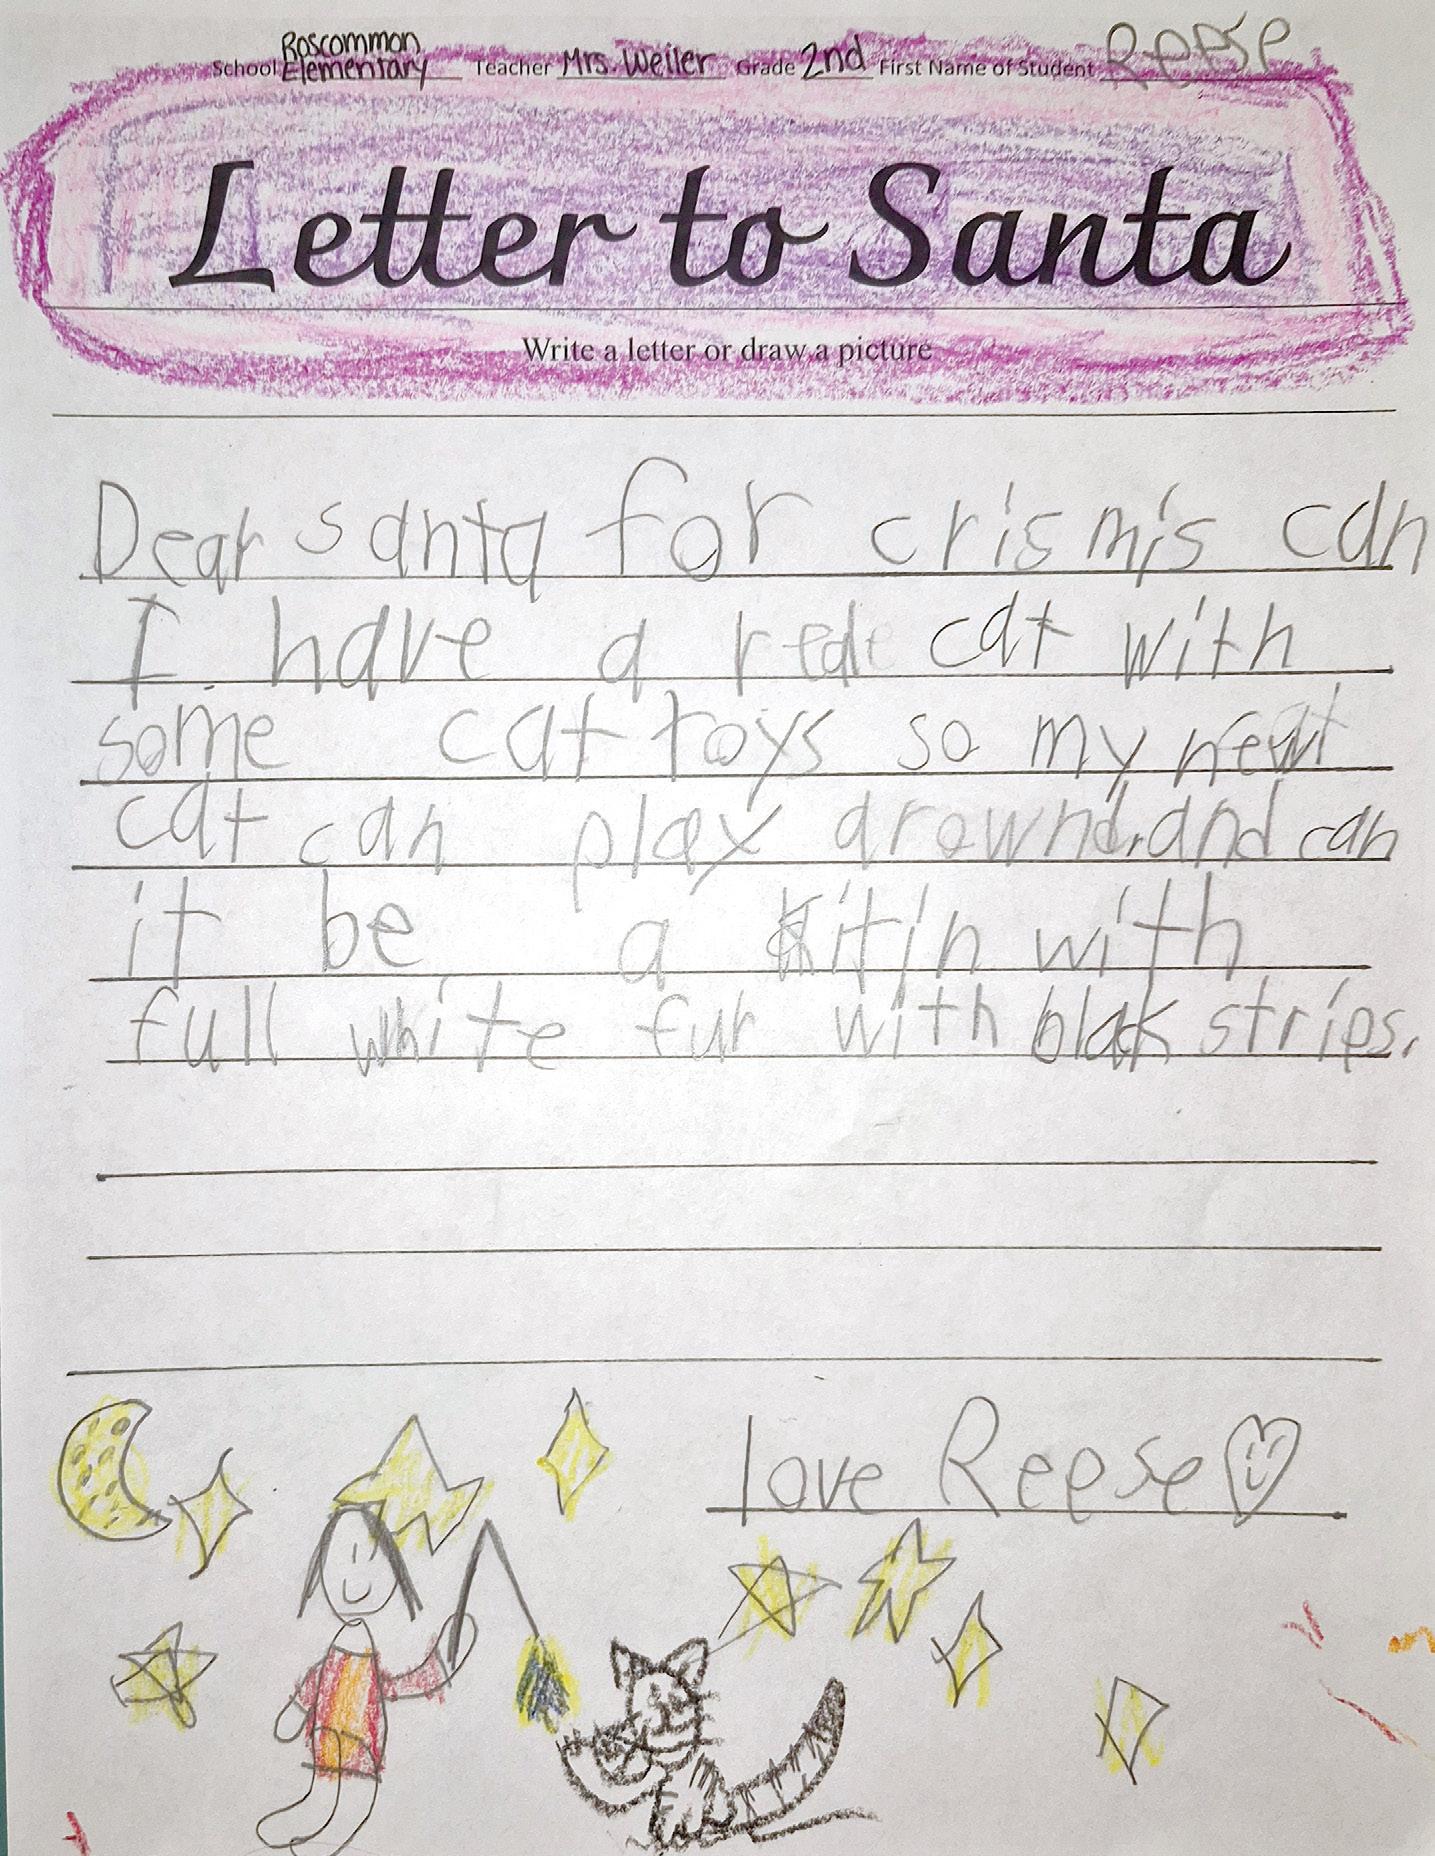 Roscommon
School Elementary Teacher Mrs. Weiler Grade 2nd First Name of Student Reese
Letter to Santa
Write a letter or draw a picture
Dear santa for crismis can
I have a rede cat with
some cat toys so my
cat can play arownd. and can
it be a kitin with
full white fur with blak strips.
love Reese